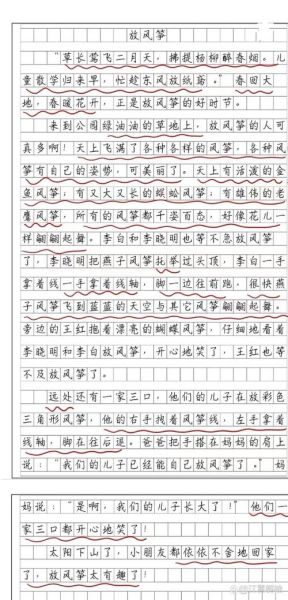 放风筝
“草长莺飞二月天，拂提杨柳醉春烟。儿
童散学归来早，忙趁东风放纸鸢。”春回大
地，春暖花开，正是放风筝的好时节。
来到公园绿油油的草地上，放风筝的人可
真多啊！天上飞满了各种各样的风筝，各种风
筝有自己的姿势，可美丽了。天上有活泼的金
鱼风筝；有又大又长的蜈蚣风筝；有雄伟的老
鹰风筝，所有的风筝都千姿百态，好像花儿一
样翩翩起舞。李白和李晓明也等不急放风筝
了，李晓明把燕子风筝托举过头顶，李白一手
拿着线一手拿着线轴，脚一边往前跑，很快燕
子风筝飞到蓝蓝的天空与其它风筝翩翩起舞。
旁边的王红抱着漂亮的蝴蝶风筝，仔细地看着
李晓明和李白放风筝，开心地笑了，王红也等
不及放风筝了。
远处还有一家三口，他们的儿子在放彩色
三角形风筝，他的右手拽着风筝线，左手拿着
线轴，脚在往后退。爸爸把手搭在妈妈的肩上
说：“我们的儿子已经能自己放风筝了。”妈
妈说：“是啊，我们的儿子长大了！”他们一
家三口都开心地笑了！
太阳下山了，小朋友都依依不舍地回家
了，放风筝太有趣了！